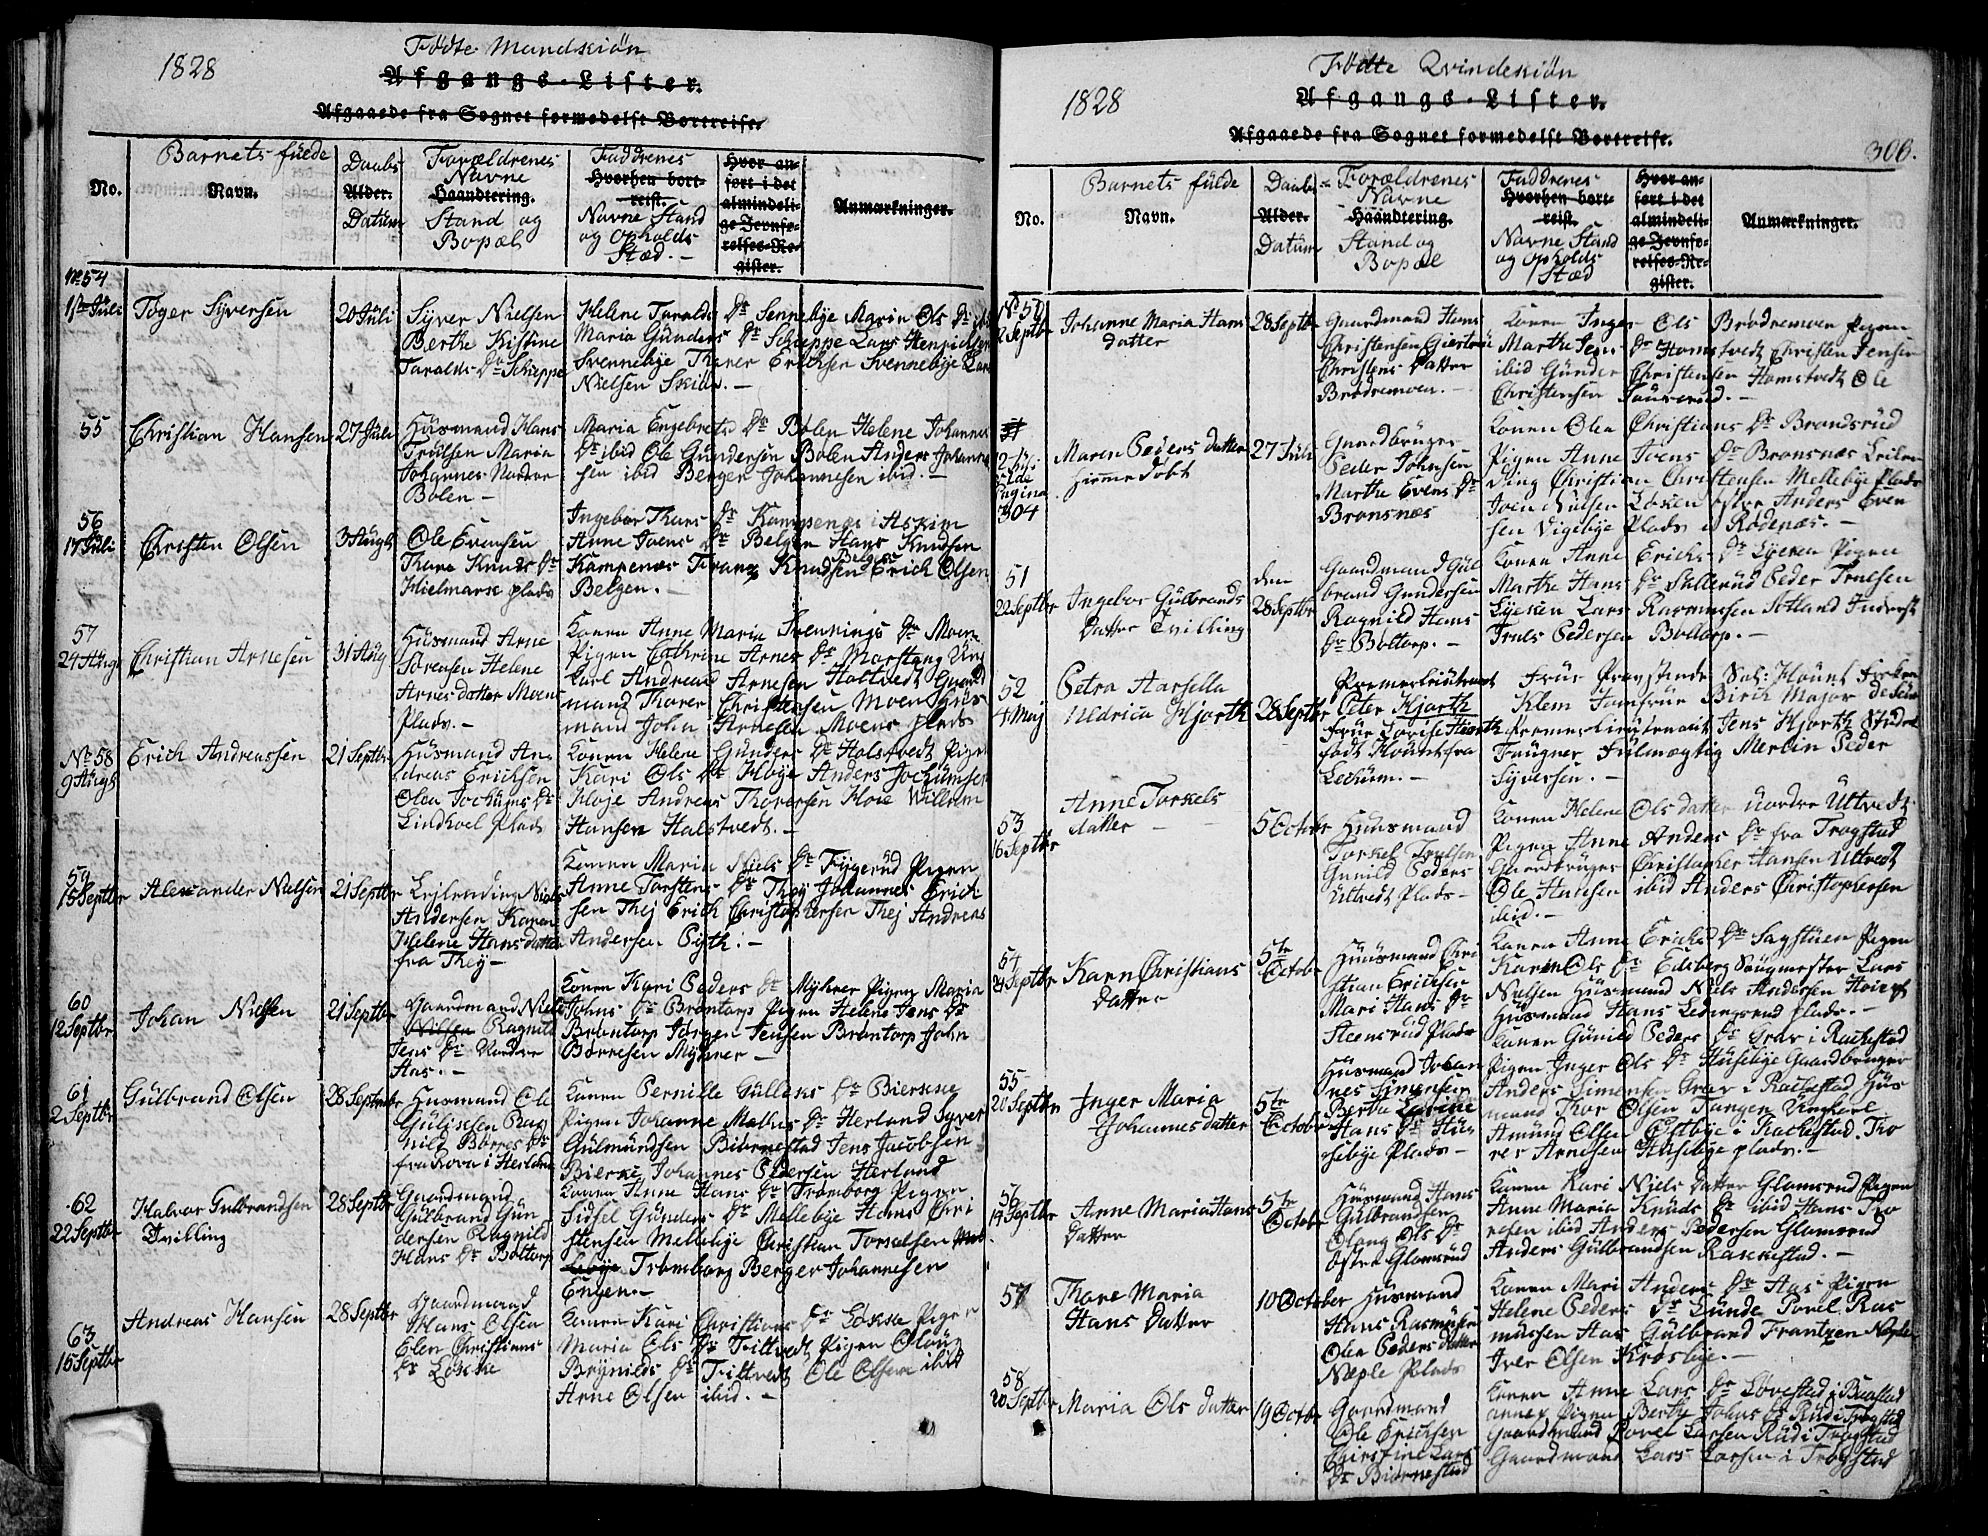 1828
Födte Mandskiön
Afgangs-Lister.
Afgaaede fra Sognet formedelst Bortreise.
No.
Barnets fulde
Navn.
Daabs
Alder.
Datum
Forældrenes
Navne
Haandtering.
Stand og
Bopæl
Faddrenes
Hvorhen bort-
reist.
Navne Stand
og Opholds
Stæd.-
Hvor an-
ført i det
almindeli-
ge Jevnfø-
relses-Re-
gister.
Anmærkninger.
No 54
Juli
Syversen
20 Juli
Syver Nielsen
Berthe Kistine
Taralds Dr Schieppe
Helene Taralds Dr Sennebye Maria Ols Dr
Maria Gunders Dr Schieppe Lars Henrichsen
Svennebye Thorer Erichsen Svennebye Lars
Nielsen Skibs.-
55
Christian Hansen
27 Juli
Huusmand Hans
Trulsen Maria
Johannes Nordre
Bolen-
Maria Engebrets Dr Bolen Helene Johannes
Dr ibid Ole Gundersen Bolen Anders Johanne
sen ibid Berger Johannesen ibid.-
56
17 Juli
Christen Olsen
3 Augst
Ole Evensen
Thara Knuds Dr
Hielmarse plads
Ingebor Thars Dr Kampenæs i Askim
Anne Joens Dr Belgen Hans Knudsen
Kampenæs Frans Knudsen Belgen Erich Olsen
Belgen.-
57
24 Augst
Christian Arnesen
31 Aug
Huusmand Arne
Sörensen Helene
Arnes datter Moens
Plads.-
Konen Anne Maria Svennings Dr Moen
Pigen Cathrine Arnes Dr Morstang Ung
Karl Andreas Arnesen Holtvedt Gaard
mand Thorer Christensen Moen Huus
mand John Arnesen Moens plads
No 58
9 Augst
Erich Andreassen
21 Septbr
Huusmand An
dreas Erichsen
Olea Jochums Dr
Lindhoel Plads
Konen Helene Gunders Dr Halstvedt Pigen
Kari Ols Dr Höye Anders Jochumsen
Höje Andreas Thorersen Höie Wilhelm
Hansen Halstvedt.-
59
15 Septbr
Alexander Nielsen
21 Septbr
Lejlænding Niels
Andersen Karen
Helene Hans datter
fra They-
Konen Maria Niels Dr Fygerud Pigen
Anne Torstens Dr They Johannes Erich
sen Thej Erich Christophersen Thej Andreas
Andersen .-
60
12 Septbr
Johan Nielsen
21 Septbr
Gaardmand Niels
Nilsen Ragnild
Jens Dr Nordre
Aas.-
Konen Kari Peders Dr Myhrer Pigen Maria
Johns Dr Bröntorp Pigen Helene Jens Dr
Bröntorp Jörgen Jensen Bröntorp John
Börresen Myhrer-
61
2 Septbr
Gulbrand Olsen
28 Septbr
Husmand Ole
Gulichsen Rag
nild Börres Dr
fra Rova i Herland
Konen Pernille Gulleks Dr Bierkne
Pigen Johanne Dr Herland Syver
Gulmundsen Biörnestad Jens Jacobsen
Bierke Johannes Pedersen Herland
62
22 Septbr
Halvor Gulbrandsen
Tvilling
28 Septbr
Gaardmand
Gulbrand Gun
dersen Ragnild
Hans Dr Boltorp
Konen Anne Hans Dr Trömborg Pigen
Sidsel Gunders Dr Mellebye Hans Chri
stensen Mellebye Christian Torkelsen
Trömborg Berger Johannesen
Engen.-
63
15 Septbr
Andreas Hansen
28 Septbr
Gaardmand
Hans Olsen
Elen Christians
Dr Lökke
Konen Kari Christians Dr Løkke Pigen
Maria Ols Dr Tittvedt Pigen Oloug
Brynilds Dr Tittvedt Ole Olsen ibid
Arne Olsen ibid.-
1828
Födte Qvindekiön
Afgangs-Lister.
Afgaaede fra Sognet formedelst Bortreise.
306.
No.
Barnets fulde
Navn.
Daabs
Alder.
Datum
Forældrenes
Navne
Haandtering.
Stand og
Bopæl
Faddrenes
Hvorhen bort-
reist.
Navne Stand
og Opholds
Stæd
Hvor an-
ført i det
almindeli-
ge Jevnfø-
relses-Re-
gister.
Anmærkninger.
No 50
2 Septbr
Johanne Maria Hans
datter
28 Septbr
Gaardmand Hans
Christensen
Christens Datter
Brödremoen.-
Konen Inger Ols Brödremoen Pigen
Marthe Jens Dr Homstvedt Christen Jensen
ibid Gunder Christensen Homstvedt Ole
Christensen .-
Pagina
304
Maren Peders datter
hiemme döbt
27 Juli
Gaardbruger
Peder Johnsen
Marthe Evens Dr
Bronsnæs
Konen Olea Christians Dr Brandsrud
Pigen Anne Joens Dr Bronsnæs Leilæn
ding Christian Christensen Mellebye Plads
Joen Nilsen Løken Anders Even
sen Vigebye Plads i Rödenæs.-
51
22 Septbr
Ingebor Gulbrands
Datter Tvilling
den
28 Septbr
Gaardmand Gul
brand Gundersen
Ragnild Hans
Dr Boltorp.-
Konen Anne Erichs Dr Lyeren Pigen
Marthe Hans Dr Sallerud Peder Truelsen
Lyeren Lars Rasmussen Sotland Inderst
Truls Pedersen Boltorp.-
52
4 Maj
Petra Marsella
Uldrica Hjorth
28 Septbr
Premierlieutenant
Peter Hjorth
Frue Lovise Hiorth
född Hount fra
Lechum.-
Frue Provstinde Sal: Hount
Klem Jomfrue Birch Major
Premierlieutenant Jens Hjorth
Faugner Fulmægtig Merlin Peder
Syversen.-
53
16 Septbr
Anne Torkels
datter-
5 Octobr
Huusmand
Torkel Truelsen
Gunild Peders
Ultvedt Plads-
Konen Helene Ols datter nordre Ultvedt
Pigen Anne Anders Dr fra Trögstad
Gaardbruger Christopher Hansen Ultvedt
Ole Hansen ibid Anders Christophersen
ibid.-
54
24 Septbr
Karn Christians
Datter
5te
Octobr
Huusmand Chri
stian Erichsen
Mari Hans Dr
Steensrud Plads
Konen Anne Erichs Dr Sagstuen Pigen
Karin Ols Dr Edsberg Saugmester Lars
Nielsen Husmand Niels Andersen
Husmand Hans Ledingsrud plads.-
55
20 Septbr
Inger Maria
Johannesdatter
5te
Octobr
Husmand Johan
nes Simensen
Bertha Lovise
Hans Dr Hus
sebye Plads-
Konen Gunild Peders Dr Grav i Rackestad
Pigen Inger Ols Dr Husebye Gaardbruger
Anders Simensen Grav i Rackestad Hus
mand Thor Olsen Tangen Ungkarl
Amund Olsen Östbye i Rackestad. Tho
rer Arnesen Husebye plads.-
56
14 Septbr
Anne Maria Hans
Datter
5te
Octobr
Husmand Hans
Gulbrandsen
Oloug Ols Dr
Östre Glomsrud
Konen Kari Niels Datter Glomsrud Pigen
Anne Maria Knuds Dr ibid Hans Tho
resen ibid Anders Pedersen Glomsrud
Anders Gulbrandsen Rackestad.-
57
Thare Maria
Hans Datter
10 October
Husmand
Hans Rasmusen
Olea Peders datter
Næple Plads
Konen Mari Anders Dr Aas Pigen
Helene Peders Dr Lunde Povel Ras
mussen Aas Gulbrand Frantzen Næple
Iver Olsen Krosbye.-
58
20 Septbr
Maria Ols datter
19 Octobr
Gaardmand
Ole Erichsen
Christine Lars
Dr Biörnestad
Konen Anne Lars Dr Lövestad i Baastad
annex Pigen Berthe Johns Dr Rud i Trögstad
Gaardmand Povel Larsen Rud i Trögstad
Gaardmand Lars Larsen i Trögstad